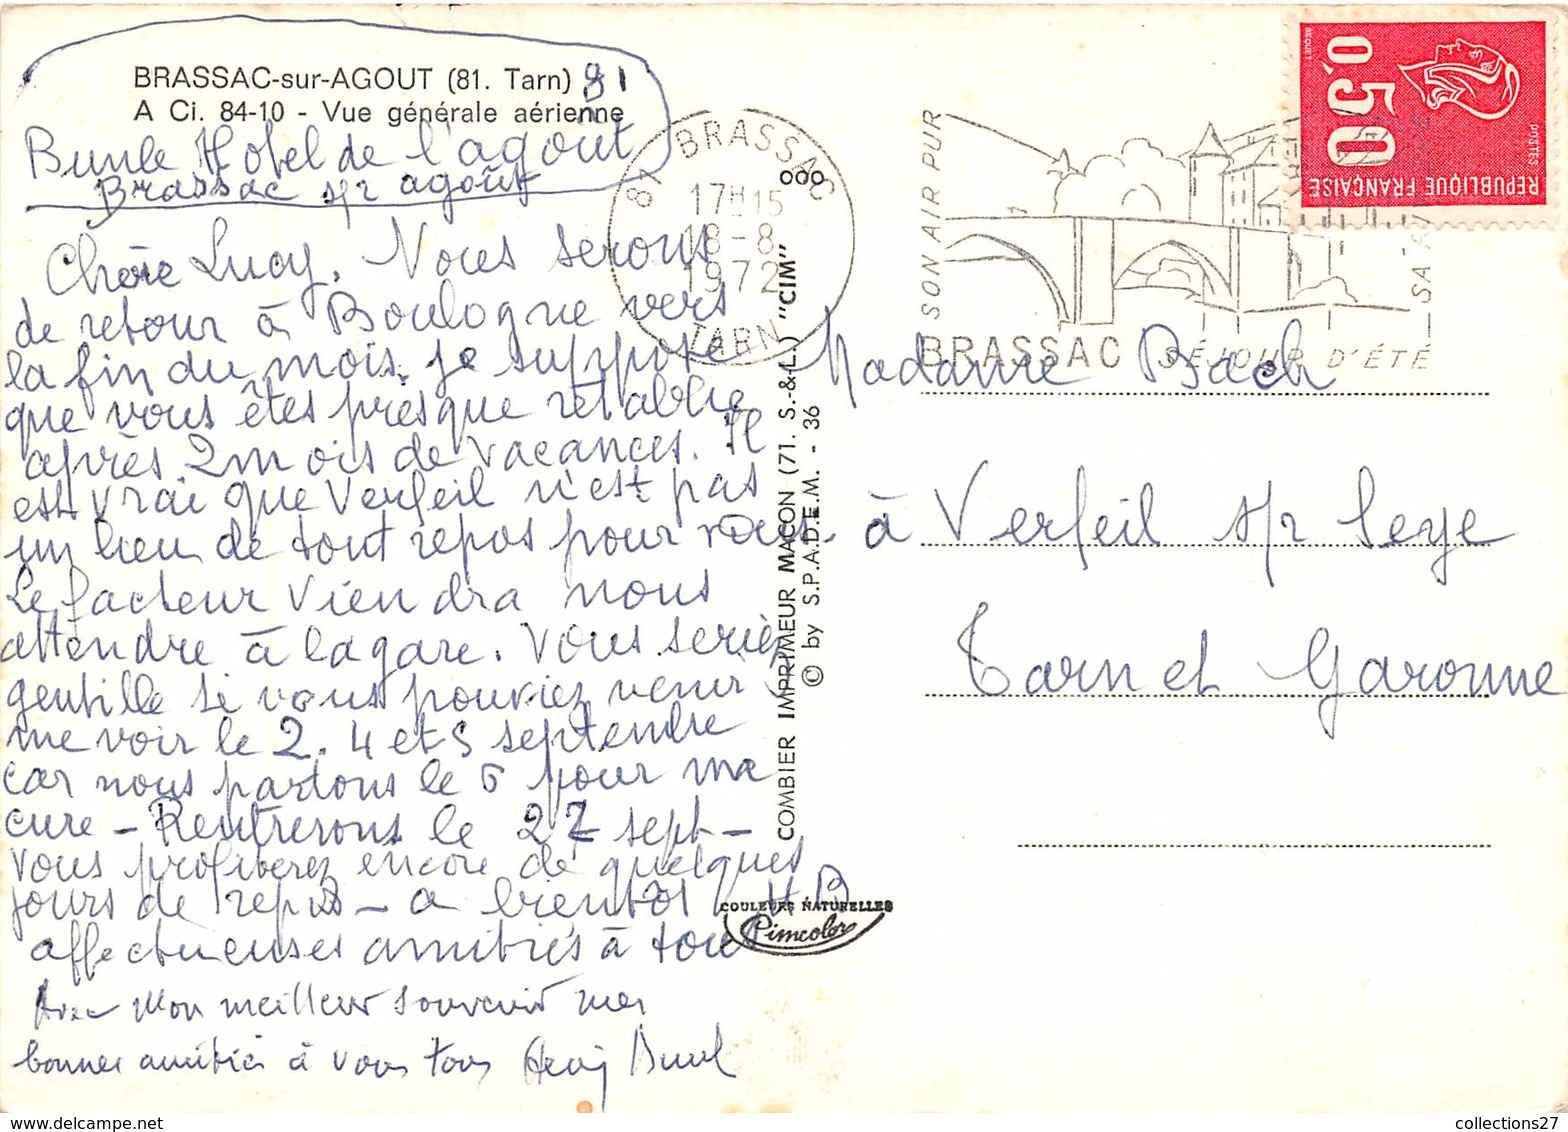 BRASSAC-sur-AGOUT (81. Tarn) 81
A Ci. 84-10 - Vue générale aérienne
Bunle Hotel de l'agout
Brassac s/r agout
Chère Lucy. Nous serons
de retour à Boulogne vers
la fin du mois. je suppose
que vous êtes presque rétablie
après 2 mois de vacances. Il
est vrai que Verfeil n'est pas
un lieu de tout repos pour vous.
Le facteur viendra nous
attendre à la gare. Vous seriez
gentille si vous pouviez venir
me voir le 2. 4 et 5 septembre
car nous partons le 6 pour ma
cure - Rentrerons le 27 sept -
vous profiterez encore de quelques
jours de repos - a bientôt HB
affectueuses amitiés à tous
Avec mon meilleur souvenir mes
bonnes amitiés à vous tous
81 BRASSAC
17H15
18-8
1972
TARN
SON AIR PUR
SA RIVIÈRE
BRASSAC SÉJOUR D'ÉTÉ
0,50
RÉPUBLIQUE FRANÇAISE
POSTES
BEQUET
COMBIER IMPRIMEUR MACON (71. S.-&-L.) "CIM"
© by S.P.A.D.E.M. - 36
COULEURS NATURELLES
Cimcolor
Madame Bach
à Verfeil s/r Seye
Tarn et Garonne
collections27